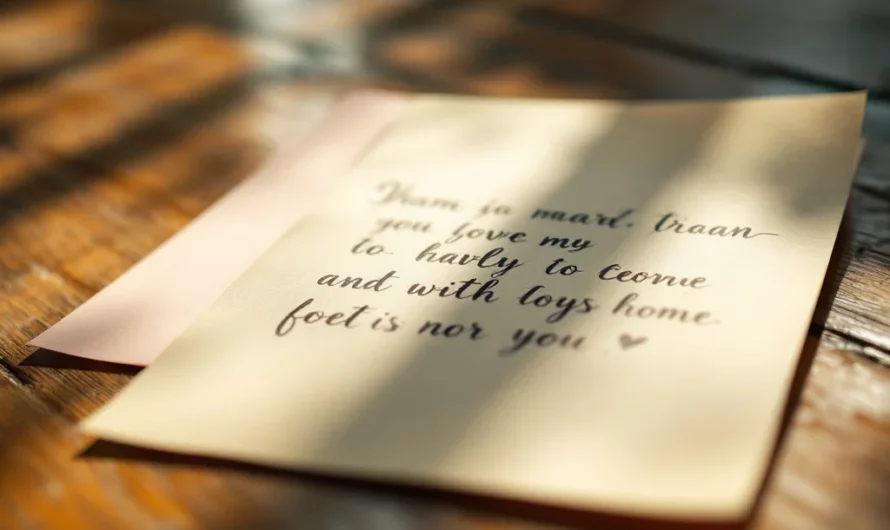 Viam ja mard. traan
you love my
to havly to ceome
and with toys home.
foet is nor you ♥